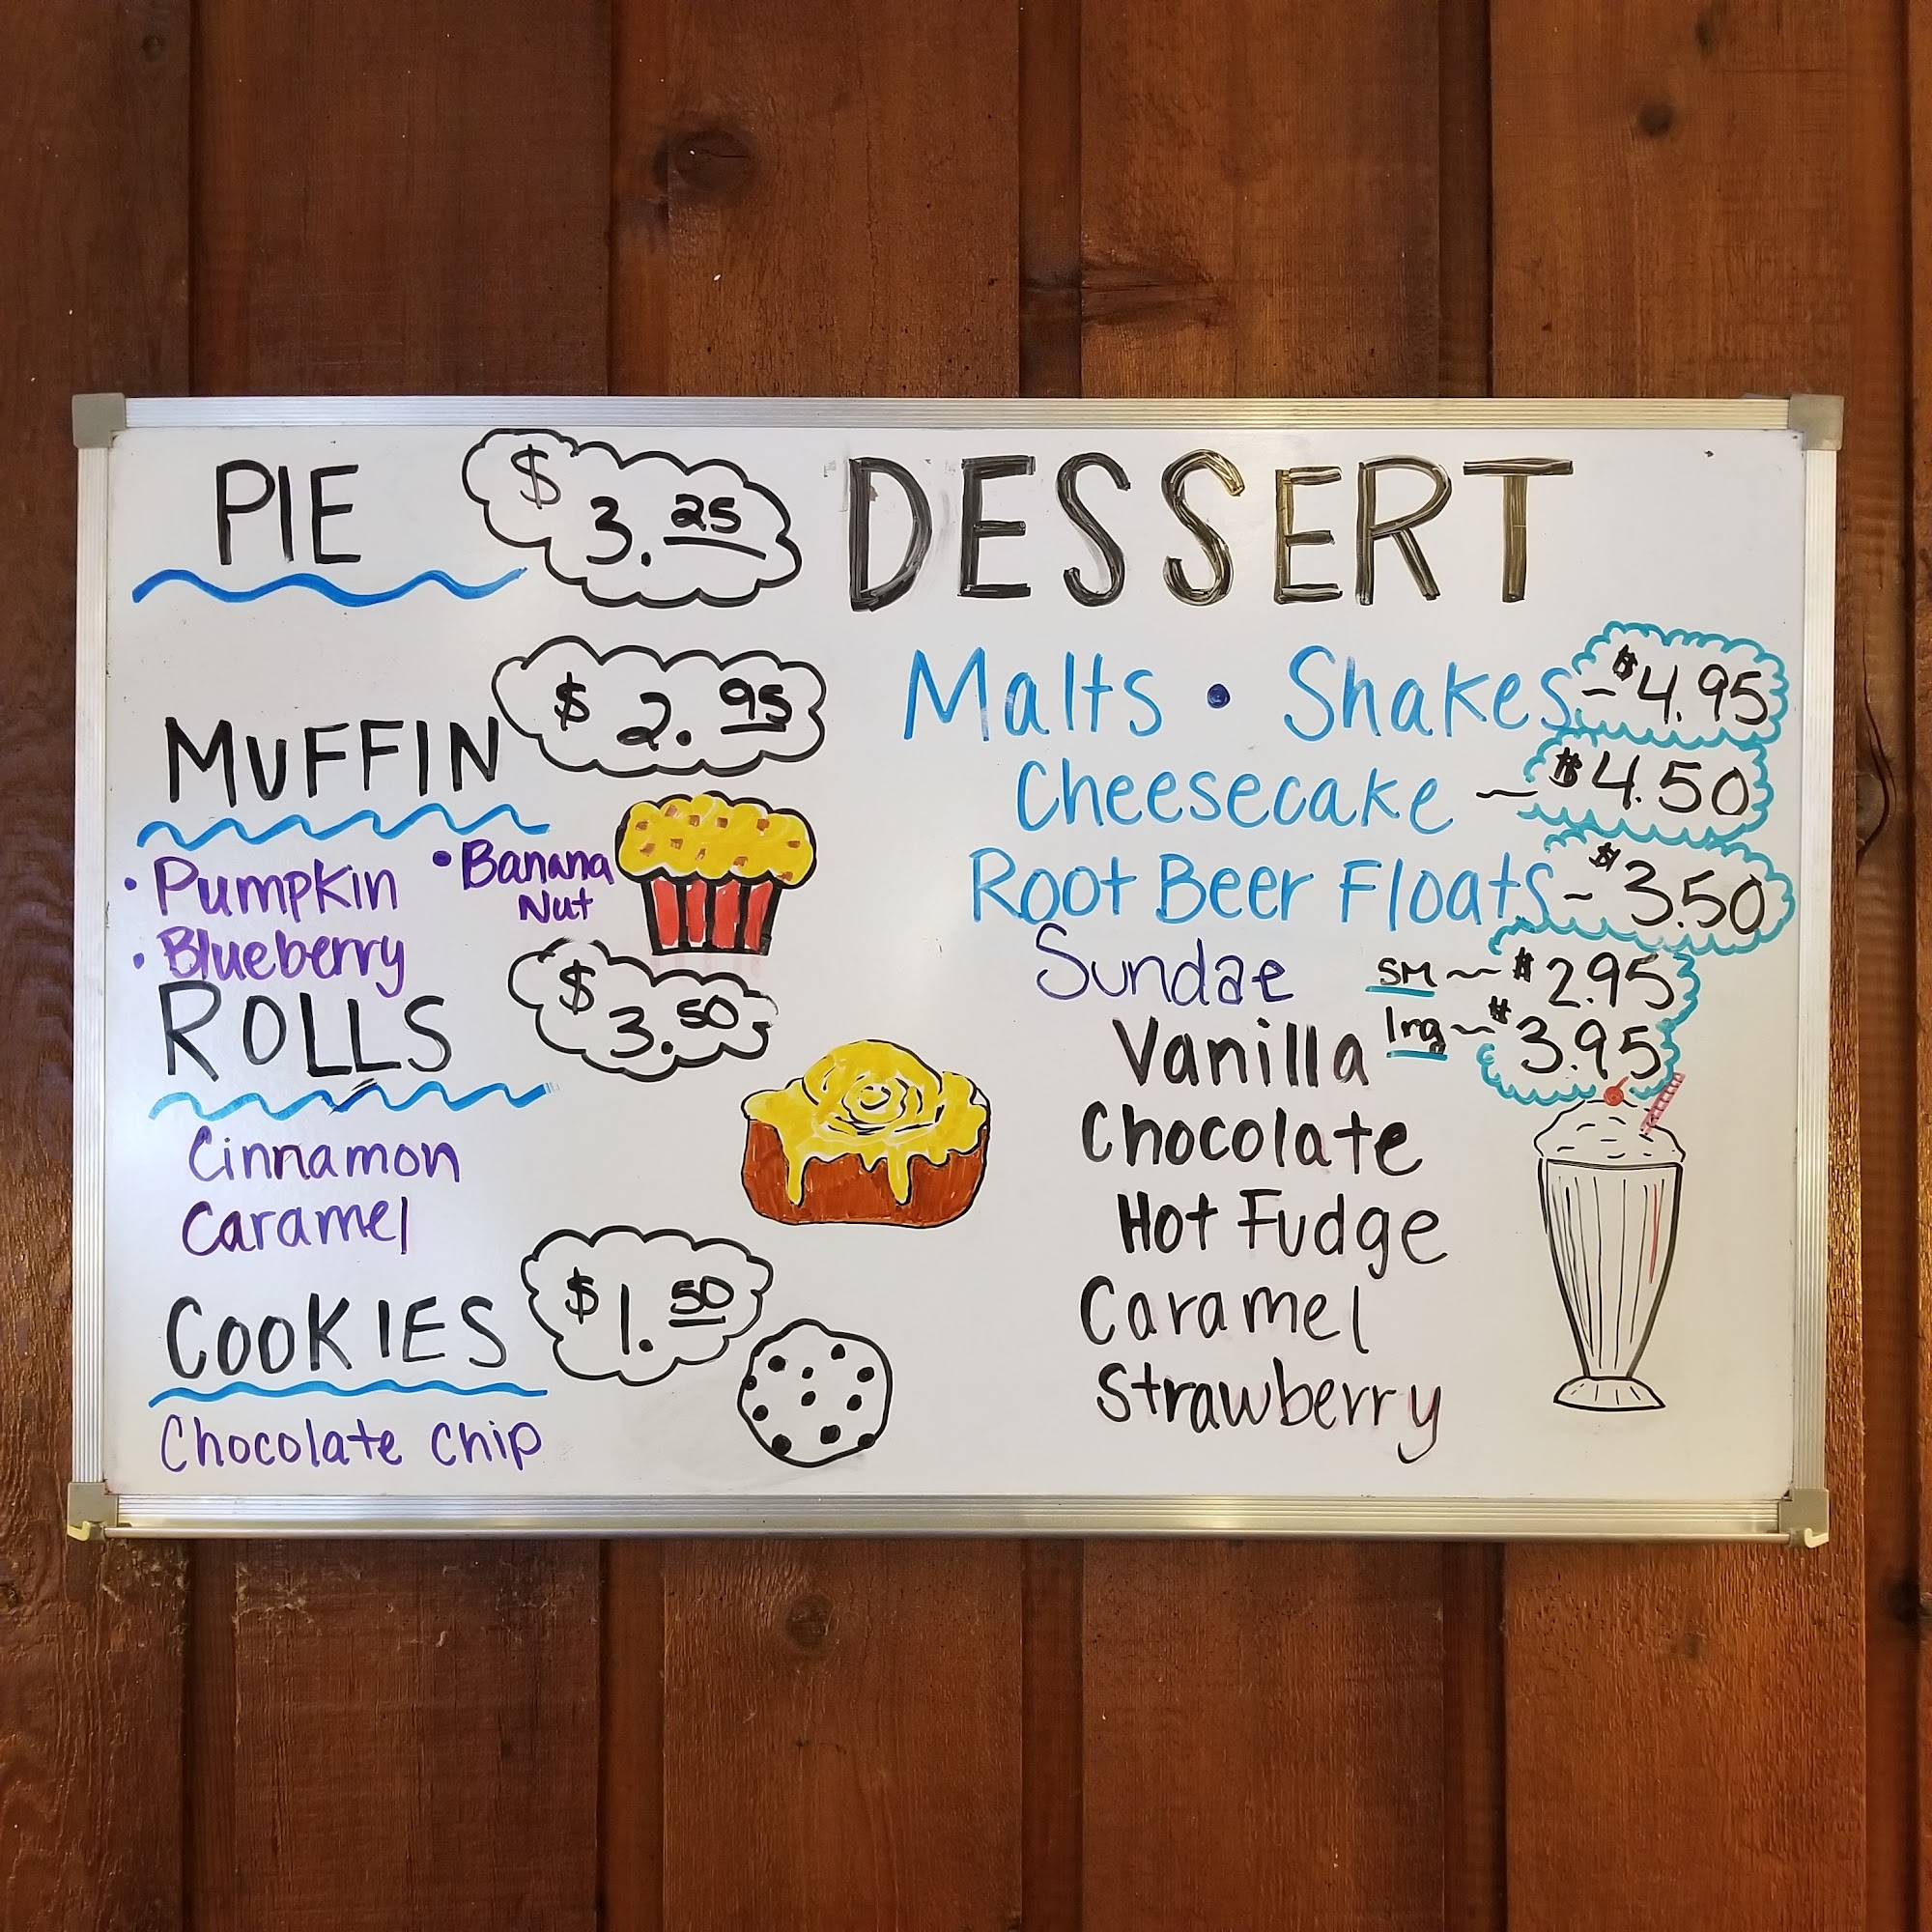 PIE $3.25
MUFFIN $2.95
• Pumpkin • Banana
Nut
• Blueberry
ROLLS $3.50
Cinnamon
Caramel
COOKIES $1.50
Chocolate Chip
DESSERT
Malts • Shakes - $4.95
Cheesecake - $4.50
Root Beer Floats - $3.50
Sundae SM ~ $2.95
lrg ~ $3.95
Vanilla
Chocolate
Hot Fudge
Caramel
Strawberry